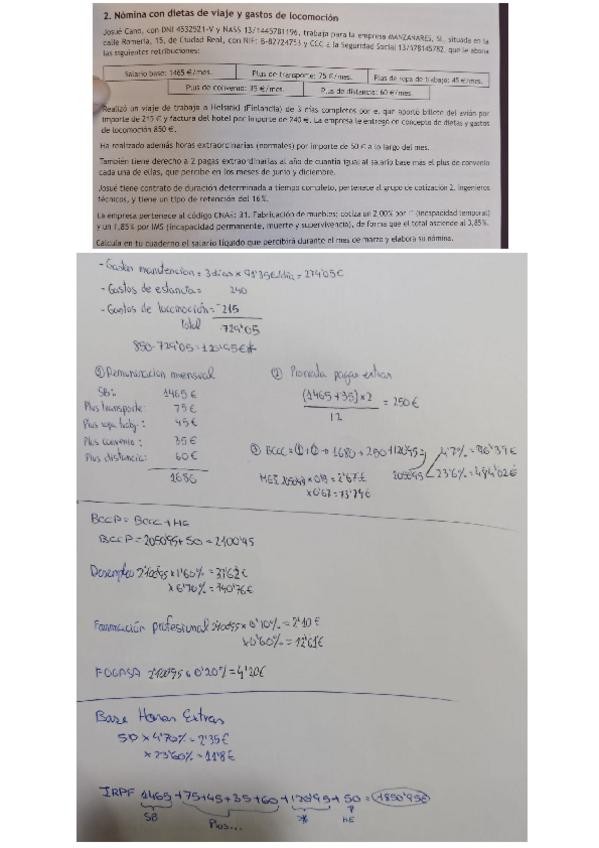 2. Nómina con dietas de viaje y gastos de locomoción
Josué Cano, con DNI 4532521-V y NASS 13/1445781196, trabaja para la empresa MANZANARES, SL, situada en la
calle Romería, 15, de Ciudad Real, con NIF: B-82724753 y CCC a la Seguridad Social 13/178145782, que le abona
las siguientes retribuciones:
Salario base: 1465 €/mes.
Plus de transporte: 75 €/mes.
Plus de ropa de trabajo: 45 €/mes.
Plus de convenio: 35 €/mes.
Plus de distancia: 60 €/mes.
Realizó un viaje de trabajo a Helsinki (Finlandia) de 3 días completos por el que aportó billete del avión por
importe de 215 € y factura del hotel por importe de 240 €. La empresa le entregó en concepto de dietas y gastos
de locomoción 850 €.
Ha realizado además horas extraordinarias (normales) por importe de 50 € a lo largo del mes.
También tiene derecho a 2 pagas extraordinarias al año de cuantía igual al salario base más el plus de convenio
cada una de ellas, que percibe en los meses de junio y diciembre.
Josué tiene contrato de duración determinada a tiempo completo, pertenece al grupo de cotización 2, ingenieros
técnicos, y tiene un tipo de retención del 16%.
La empresa pertenece al código CNAE: 31. Fabricación de muebles; cotiza un 2,00% por IT (incapacidad temporal)
y un 1,85% por IMS (incapacidad permanente, muerte y supervivencia), de forma que el total asciende al 3,85%.
Calcula en tu cuaderno el salario líquido que percibirá durante el mes de marzo y elabora su nómina.
- Gastos manutención = 3 días × 91'35€/día = 274'05€
- Gastos de estancia = 240
- Gastos de locomoción = 215
Total 729'05
850-729'05=120'95€*
① Remuneración mensual
SB: 1465 €
Plus transporte: 75 €
Plus ropa trabj.: 45€
Plus convenio: 35 €
Plus distancia: 60 €
1680
② Prorrata pagas extras
(1465+35)×2
12
= 250€
③ BCCC = ①+② → 1680 + 250 + 120'95=
2050'95
4'7% = 96'39€
23'6% = 484'02€
MEI 2050'95 × 0'13 = 2'67€
× 0'67 = 13'74€
BCCP = BCCC + HE
BCCP = 2050'95 + 50 = 2100'95
Desempleo 2100'95 × 1'60% = 33'62€
× 6'70% = 140'76€
Formación profesional 2100'95 × 0'10% = 2'10 €
× 0'60% = 12'61€
FOGASA 2100'95 × 0'20% = 4'20€
Base Horas Extras
50 × 4'70% = 2'35€
× 23'60% = 11'8€
IRPF 1465 + 75+45+35+60 + 120'95 + 50 = 1850'95€
SB
Plus...
*
HE